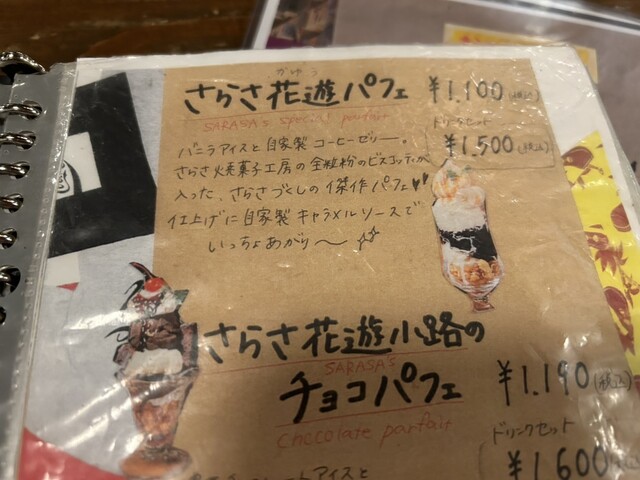 かゆう
さらさ花遊パフェ ¥1,100(税込)
SARASA's special parfait
ドリンクセット
¥1,500(税込)
バニラアイスと自家製コーヒーゼリー。
さらさ焼菓子工房の全粒粉のビスコッティが
入った、さらさづくしの傑作パフェ♥♥
仕上げに自家製キャラメルソースで
いっちょあがり〜☆☆
さらさ花遊小路の
SARASA's
チョコパフェ ¥1,190(税込)
Chocolate parfait
ドリンクセット
¥1,600(税込)